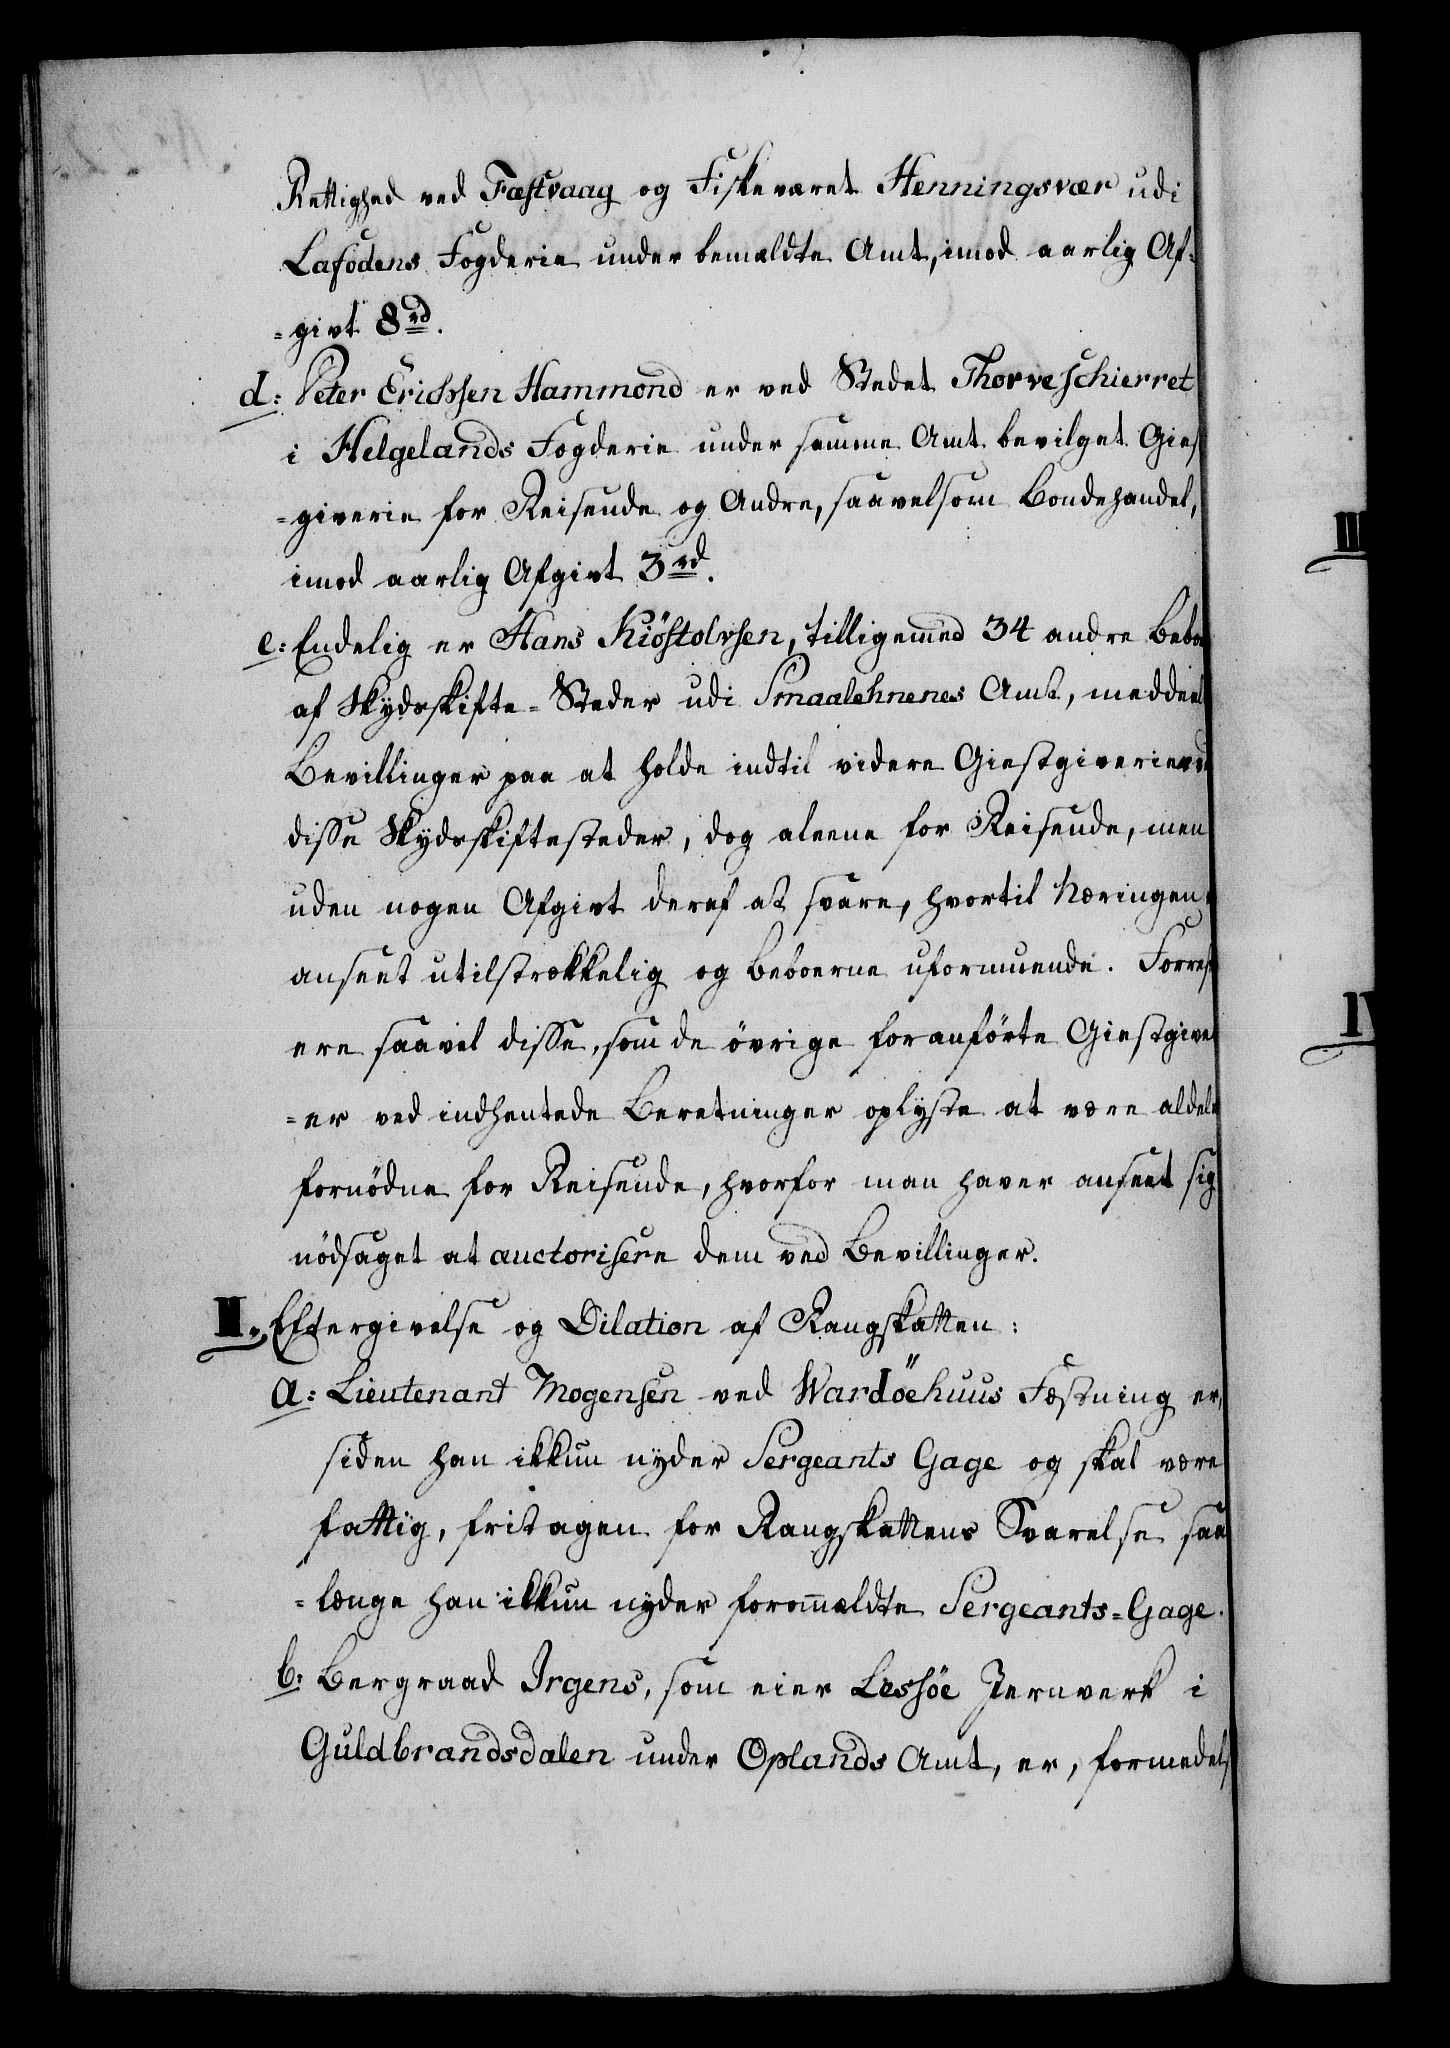 Rettighed ved Fæstvaag og Fiskeværet Henningsvær udi
Lafodens Fogderie under bemældte Amt, imod aarlig Af-
=givt 8 rd.
d: Peter Erichsen Hammond er ved Stedet Thorveschierret
i Helgelands Fogderie under samme Amt bevilget Gies
=giverie for Reisende og Andre, saavelsom Bondehandel,
imod aarlig Afgivt 3 rd.
e: Endelig er Hans Kiöstolvsen, tilligemed 34 andre Beboe
af Skydsskifte-Steder udi Smaalehnenes Amt, meddeel
Bevillinger paa at holde indtil videre Giestgiverie ved
disse Skydsskiftesteder, dog aleene for Reisende, men
uden nogen Afgivt deraf at svare, hvortil Næringen
anseet utilstrækkelig og Beboerne uformuende. Forrest
ere saavel disse, som de övrige foranförte Giestgive
=er ved indhentede Beretninger oplyste at være aldele
fornödne for Reisende, hvorfor man haver anseet sig
nödsaget at auctorisere dem ved Bevillinger.
II. Eftergivelse og Dilation af Rangskatten:
a: Lieutenant Mogensen ved Wardöehuus Fæstning er,
siden han ikkun nyder Sergeants Gage og skal være
fattig, fritagen for Rangskattens Svarelse saa
=længe han ikkun nyder formældte Sergeants-Gage.
b: Bergraad Irgens, som eier Lessöe Jernverk i
Guldbrandsdalen under Oplands Amt, er, formedels
III
IV